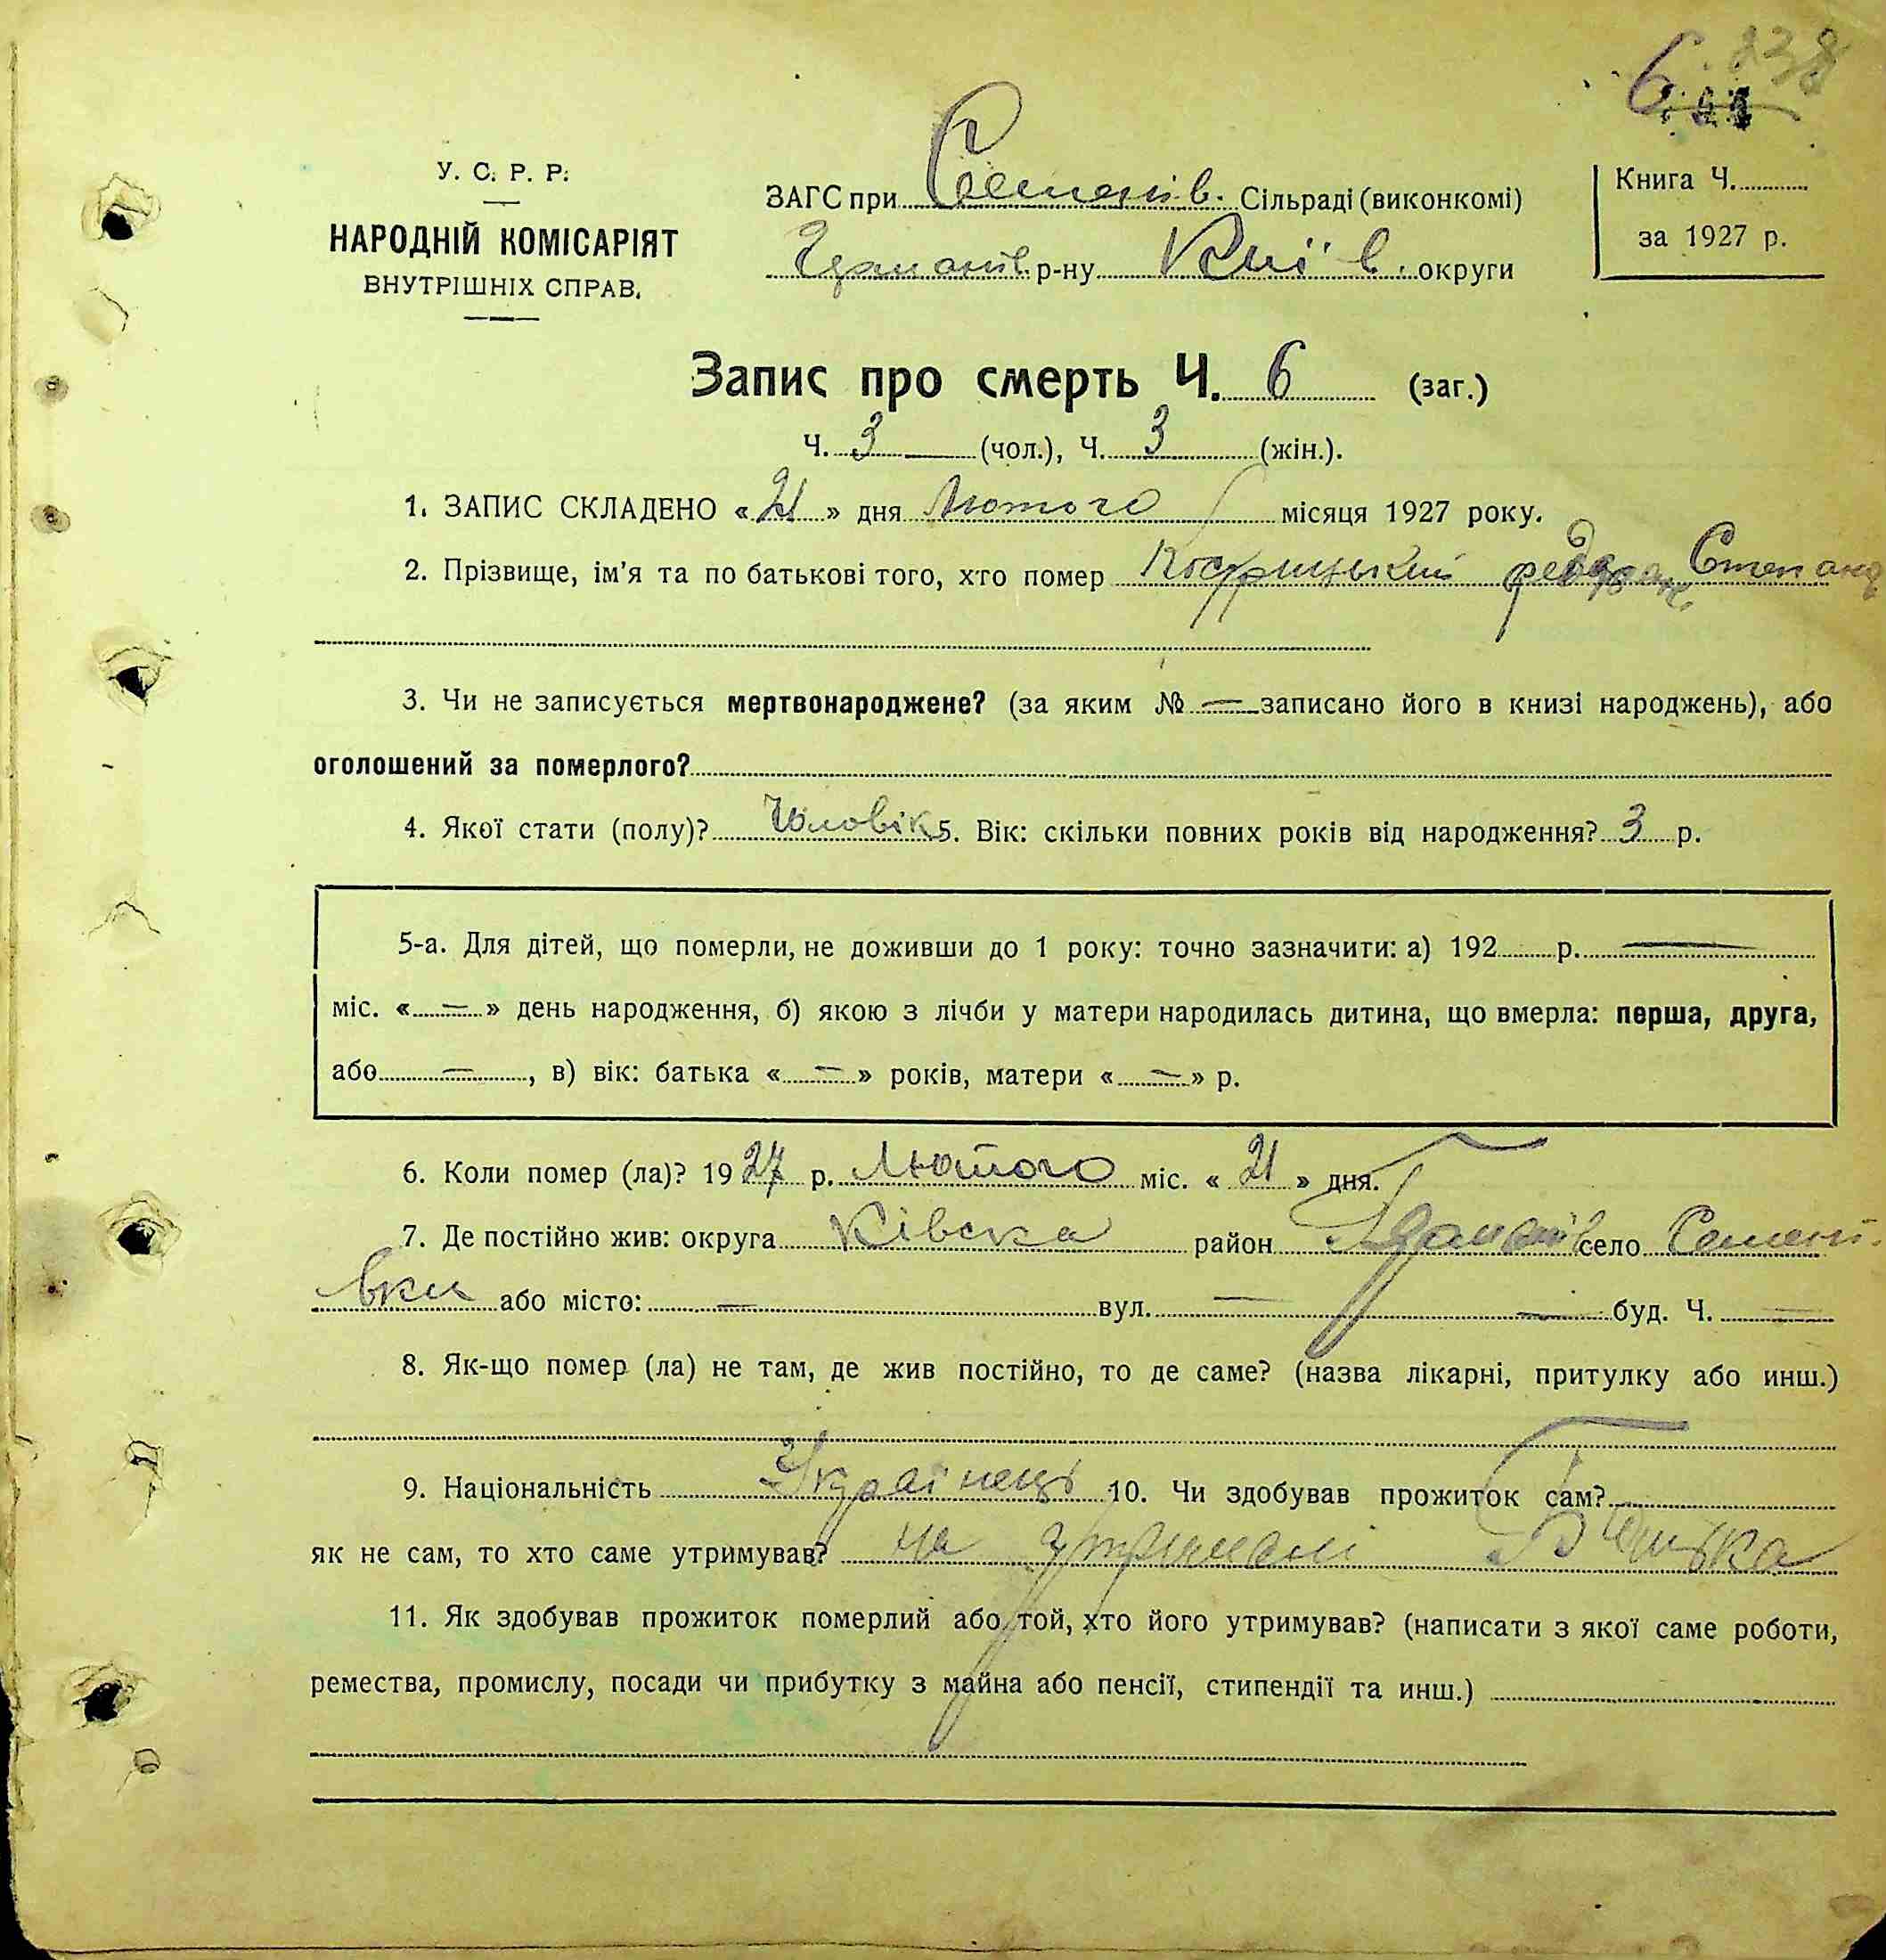 6. 838
У. С. Р. Р.
НАРОДНІЙ КОМІСАРІЯТ
ВНУТРІШНІХ СПРАВ.
ЗАГС при Семенів. Сільраді (виконкомі)
р-ну Київ. округи
Книга Ч.
за 1927 р.
Запис про смерть Ч. 6 (заг.)
Ч. 3 — (чол.), Ч. 3 (жін.).
1. ЗАПИС СКЛАДЕНО « 21 » дня Лютого місяця 1927 року.
2. Прізвище, ім'я та по батькові того, хто помер Степано
3. Чи не записується мертвонароджене? (за яким № — записано його в книзі народжень), або
оголошений за померлого?
4. Якої стати (полу)? Чоловік 5. Вік: скільки повних років від народження? 3 р.
5-а. Для дітей, що померли, не доживши до 1 року: точно зазначити: а) 192 р. —
міс. « — » день народження, б) якою з лічби у матери народилась дитина, що вмерла: перша, друга,
або — , в) вік: батька « — » років, матери « — » р.
6. Коли помер (ла)? 19 27 р. Лютого міс. « 21 » дня.
7. Де постійно жив: округа Ківска район село Семені-
вки або місто: — вул. — — буд. Ч. —
8. Як-що помер (ла) не там, де жив постійно, то де саме? (назва лікарні, притулку або инш.)
9. Національність Українець 10. Чи здобував прожиток сам?
як не сам, то хто саме утримував? на утримані Батька
11. Як здобував прожиток померлий або той, хто його утримував? (написати з якої саме роботи,
ремества, промислу, посади чи прибутку з майна або пенсії, стипендії та инш.)